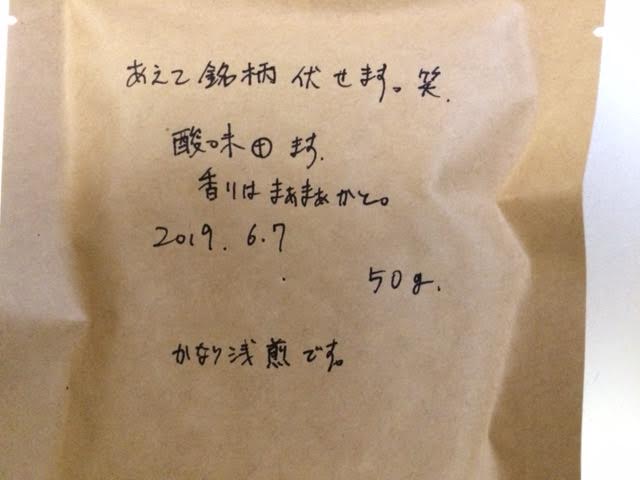 あえて銘柄伏せます。笑.
酸味⊕ます.
香りはまあまあかと。
2019.6.7
50g.
かなり浅煎です。